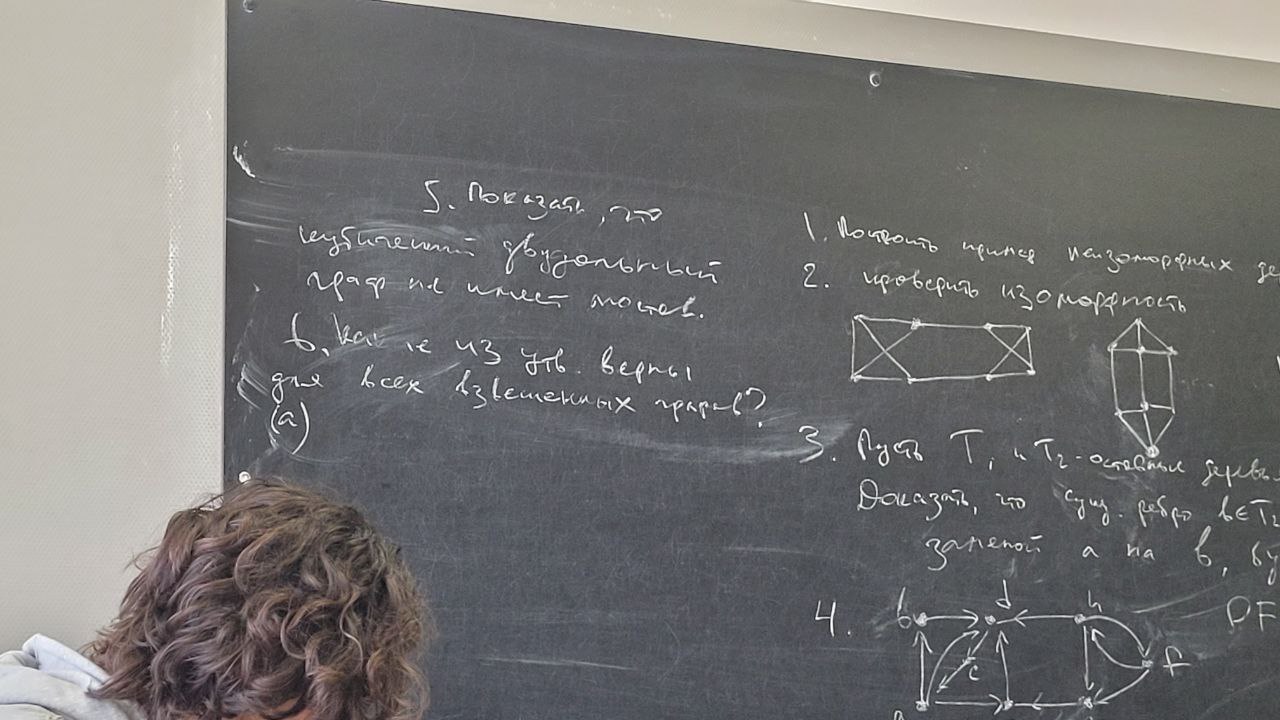 5. Показать, что
кубический двудольный
граф не имеет мостов.
6. Какие из утв. верны
для всех взвешенных графов?
(a)
1. Построить пример неизоморфных де
2. проверить изоморфность
3. Пусть T₁ и T₂ - остовные деревь
Доказать, что сущ. ребро b∈T₂
заменой a на b, бу
4. b d h DF
c f